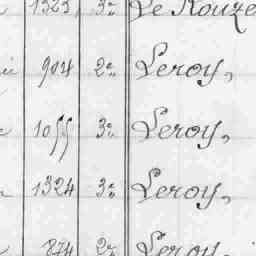 1323, 3e Le Rouze
904 2e Leroy,
1055 3e Leroy,
1324 3e Leroy,
874 2e Leroy,